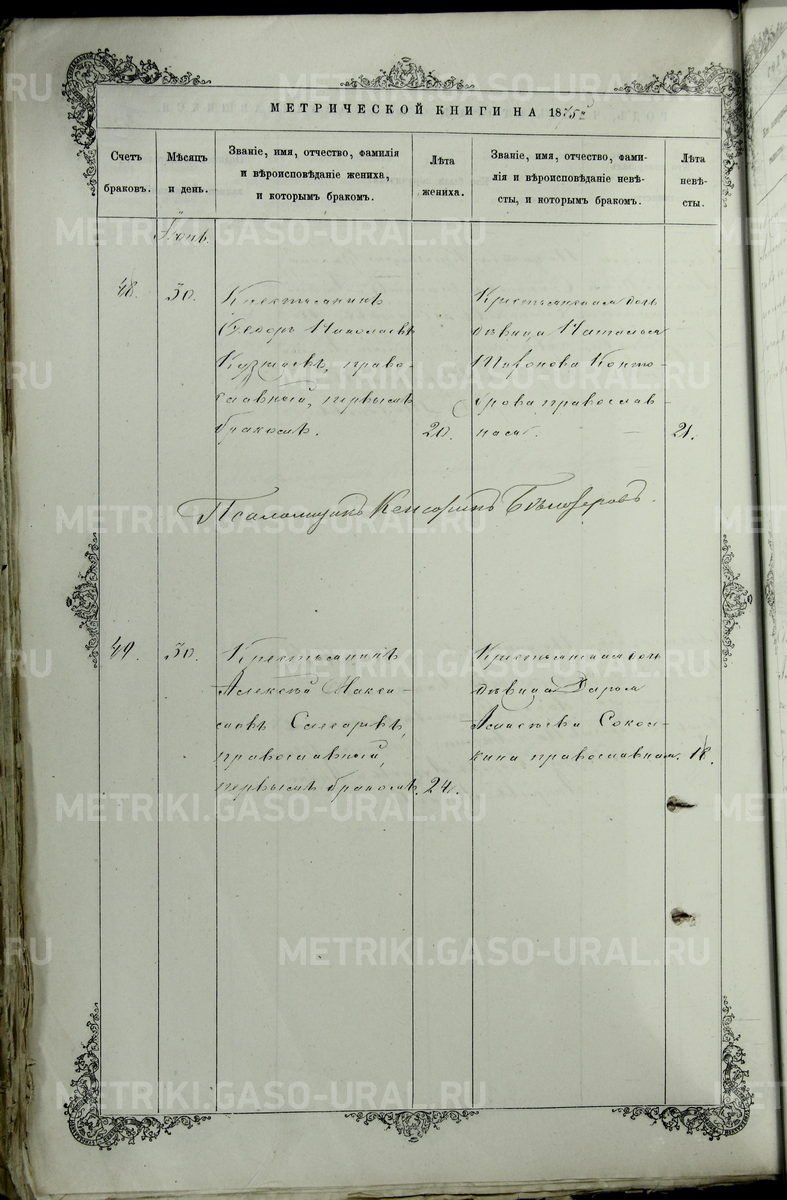 МЕТРИЧЕСКОЙ КНИГИ НА 1875й
Счетъ браковъ.
Мѣсяцъ и день.
Званіе, имя, отчество, фамилія
и вѣроисповѣданіе жениха,
и которымъ бракомъ.
Лѣта жениха.
Званіе, имя, отчество, фами-
лія и вѣроисповѣданіе невѣ-
сты, и которымъ бракомъ.
Лѣта невѣ-
сты.
Іюнь.
48. 30.
Крестьянинъ
Ѳедоръ Николаевъ
Кузнаевъ, право-
славный, первымъ
бракомъ. 20.
Крестьянская дочь
дѣвица Наталья
Миронова Конто-
рова православ-
ная. 21.
Псаломщикъ Кенсоринъ Бѣлозеровъ.
49. 30.
Крестьянинъ
Алексѣй Макси-
мовъ
православный,
первымъ бракомъ. 24.
Крестьянская дочь
дѣвица Дарья
Соко-
кина православная. 18.
METRIKI.GASO-URAL.RU